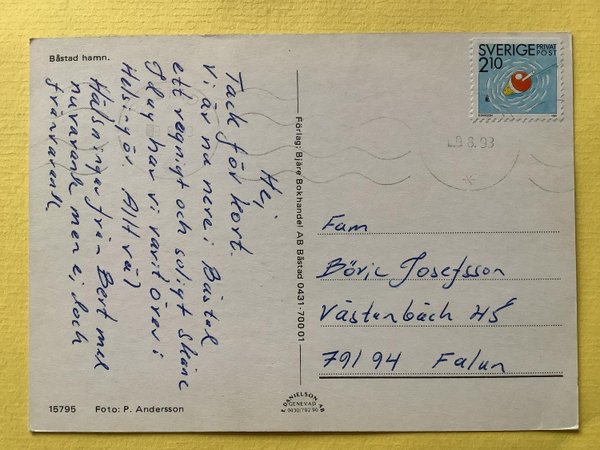 Båstad hamn.
Hej,
Tack för kort.
Vi är nu nere i Båstad
ett regnigt och soligt Skåne
Idag har vi varit över i
Helsingör. Allt väl
Hälsningar från Bert med
nuvarande men ej dock
frånvarande
15795 Foto: P. Andersson
Förlag: Bjäre Bokhandel AB Båstad 0431-700 01
DANIELSON AB
GENEVAD
0430/792 90
SVERIGE PRIVAT
POST
2.10
9.8.93
Fam
Börje Josefsson
Västanbäck 45
791 94 Falun